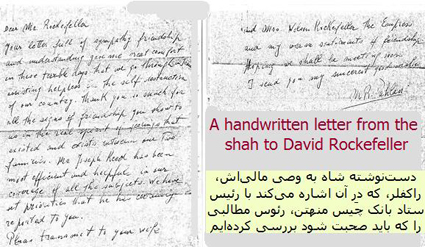 Dear Mr Rockefeller
Your letter full of sympathy friendship
and understanding gave me real comfort
in these terrible days that we go through
assisting helpless in the self destruction
of our country. Thank you so much for
all the signs of friendship you show to
us in the real spirit of feelings that
existed and exists between our two
families. Mr Joseph Reed has been
most efficient and helpful in our
coverage of all the subjects. We have
set priorities that he has
reported to you.
Please transmit to your wife
and Mrs. Nelson Rockefeller the Empress
and my warm sentiments of friendship
Hoping we shall be meeting soon
I send you my sincerest good wishes
A handwritten letter from the
shah to David Rockefeller
دست‌نوشته شاه به وصی مالی‌اش،
راکفلر، که در آن اشاره می‌کند با رئیس
ستاد بانک چیس منهتن، رئوس مطالبی
را که باید صحبت شود بررسی کرده‌ایم